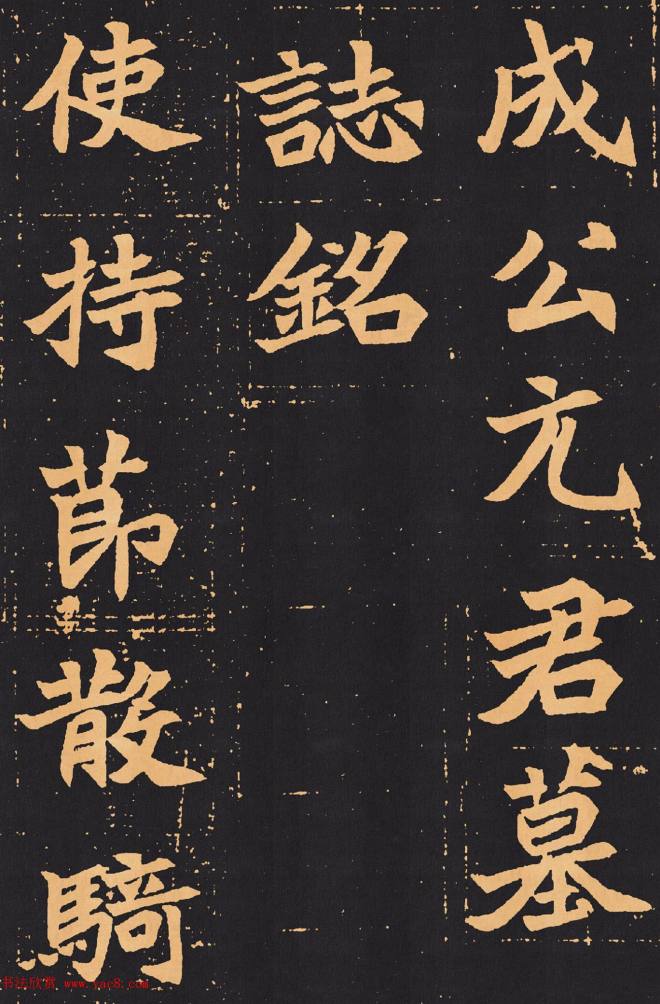 成公元君墓
誌銘
使持節散騎
书法欣赏 www.yac8.com